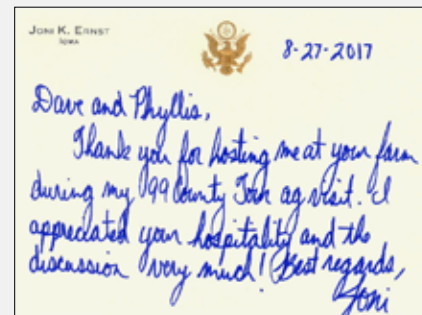 JONI K. ERNST
IOWA
8-27-2017
Dave and Phyllis,
Thank you for hosting me at your farm
during my 99 County Tour ag visit. I
appreciated your hospitality and the
discussion very much! Best regards,
Joni